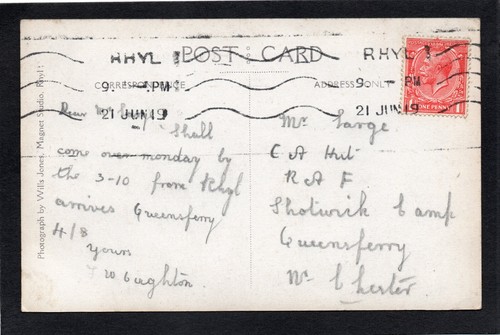 RHYL
POST CARD
RHYL
9 - PM
9 - PM
21 JUN 19
21 JUN 19
CORRESPONDENCE
ADDRESS ONLY
ONE PENNY
Photograph by Wills Jones, Magnet Studio, Rhyl:
Dear
Shall
come over monday by
the 3-10 from Rhyl
arrives Queensferry
4/8
yours
Mr Large
C A Hut
R A F
Shotwick Camp
Queensferry
Nr Chester